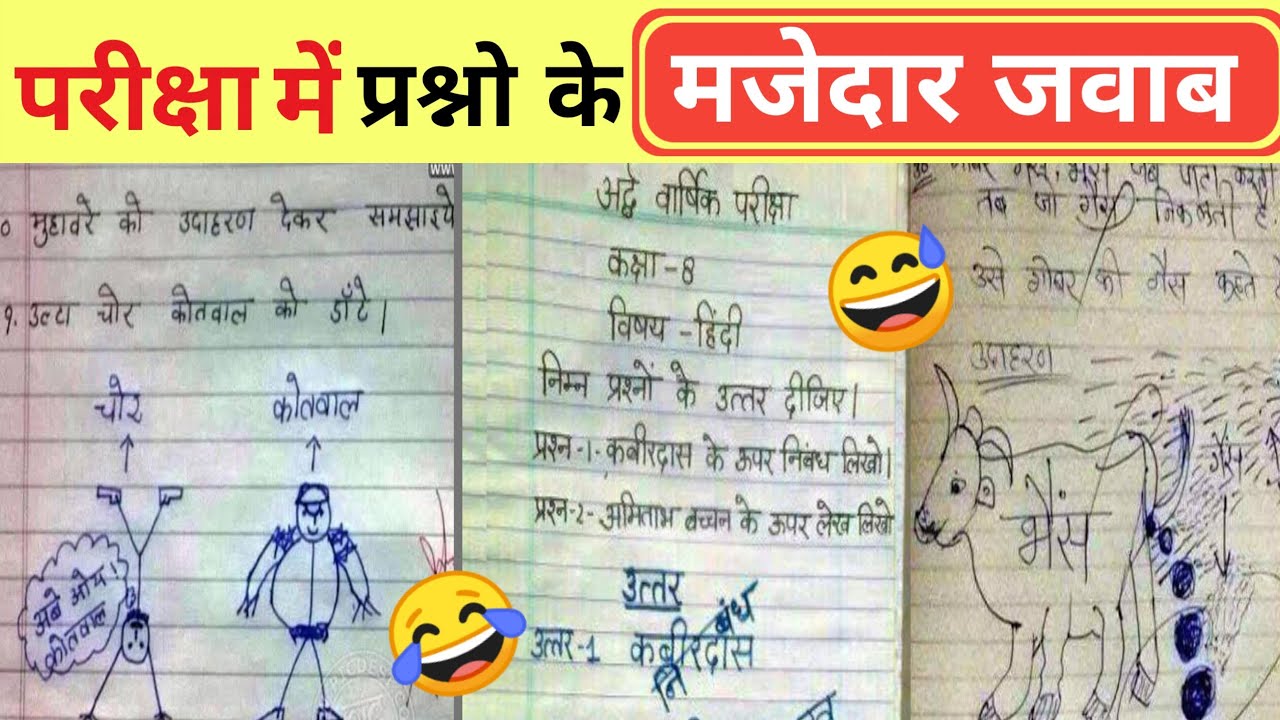 परीक्षा में प्रश्नो के मजेदार जवाब
मुहावरे को उदाहरण देकर समझाइये
१. उल्टा चोर कोतवाल को डाँटे।
चोर कोतवाल
अबे ओय।
कोतवाल
अर्द्ध वार्षिक परीक्षा
कक्षा-8
विषय-हिंदी
निम्न प्रश्नों के उत्तर दीजिए।
प्रश्न-1- कबीरदास के ऊपर निबंध लिखो।
प्रश्न-2- अमिताभ बच्चन के ऊपर लेख लिखो
उत्तर
उत्तर-1 कबीरदास
नि
बंध
तब जो गैस निकलती है
उसे गोबर की गैस कहते
उदाहरण
गैस
भैंस